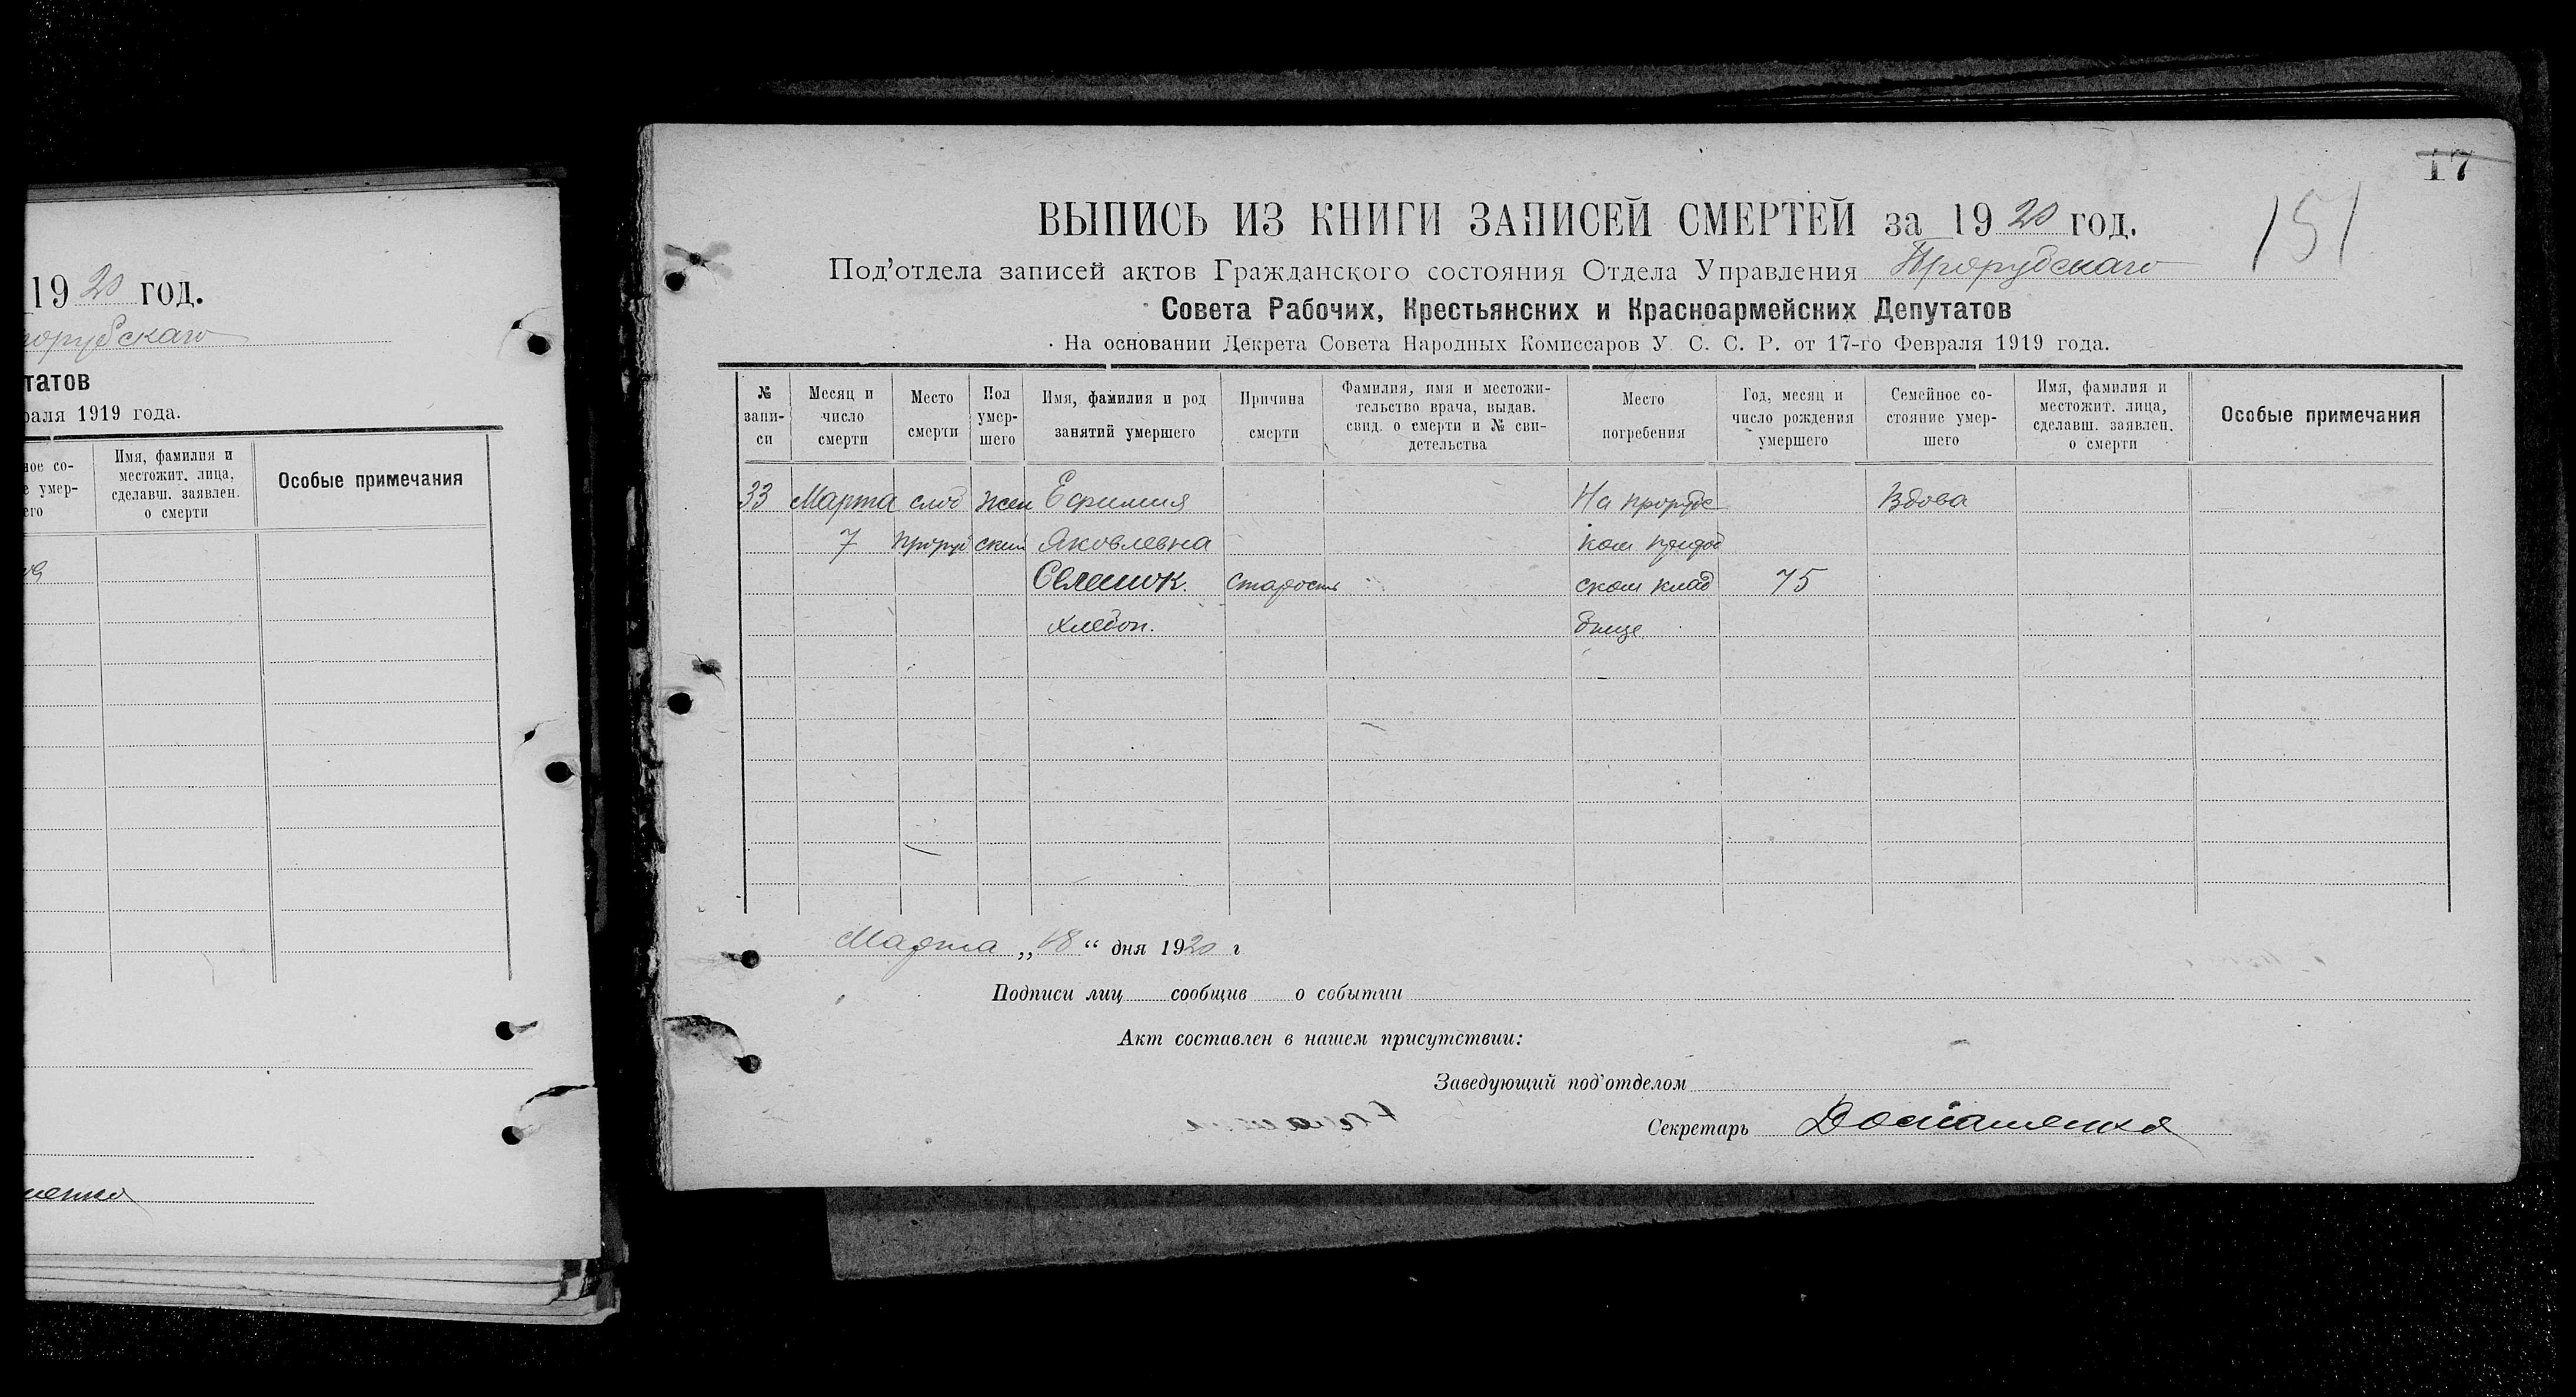 19 20 год.
татов
раля 1919 года.
ное со-
е умер-
его
Имя, фамилия и
местожит. лица,
сделавш. заявлен.
о смерти
Особые примечания
17
151
ВЫПИСЬ ИЗ КНИГИ ЗАПИСЕЙ СМЕРТЕЙ за 19 20 год.
Под'отдела записей актов Гражданского состояния Отдела Управления Прорубскаго
Совета Рабочих, Крестьянских и Красноармейских Депутатов
На основании Декрета Совета Народных Комиссаров У. С. С. Р. от 17-го Февраля 1919 года.
№ запи-си
Месяц и число смерти
Место смерти
Пол умер-шего
Имя, фамилия и род занятий умершего
Причина смерти
Фамилия, имя и местожи-тельство врача, выдав. свид. о смерти и № сви-детельства
Место погребения
Год, месяц и число рождения умершего
Семейное со-стояние умер-шего
Имя, фамилия и местожит. лица, сделавш. заявлен. о смерти
Особые примечания
33 Марта слоб жен Ефимия На прорубс Вдова
7 Проруб ский Яковлевна ком
старость ском клад 75
хлебоп. бище
Марта „18“ дня 1920 г
Подписи лиц сообщив о событии
Акт составлен в нашем присутствии:
Заведующий под'отделом
Секретарь